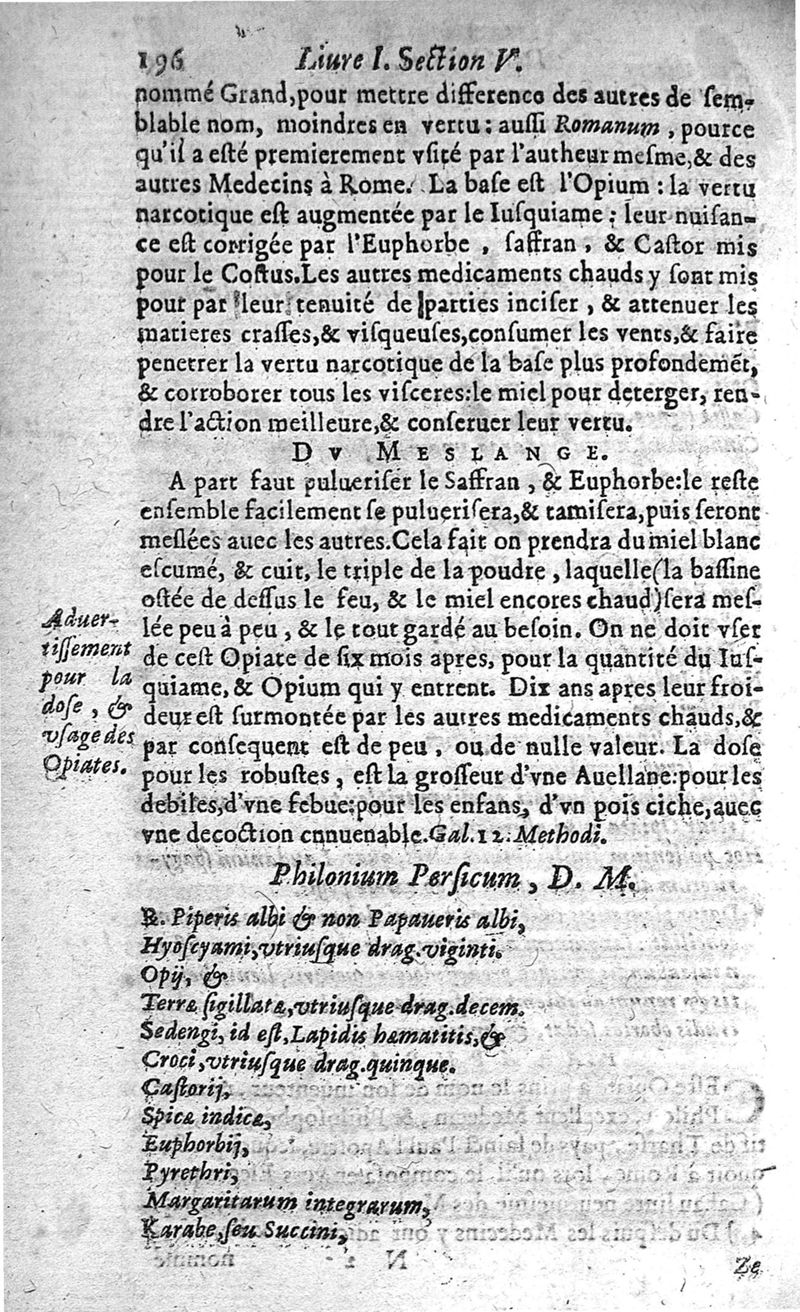 196 Liure I. Section V.
nommé Grand,pour mettre difference des autres de ſem-
blable nom, moindres en vertu : auſſi Romanum , pource
qu'il a eſté premierement vſité par l'autheur meſme,& des
autres Medecins à Rome. La baſe eſt l'Opium : la vertu
narcotique eſt augmentée par le Iuſquiame ; leur nuiſan-
ce eſt corrigée par l'Euphorbe , ſaffran , & Caſtor mis
pour le Coſtus.Les autres medicaments chauds y ſont mis
pour par leur tenuité de parties inciſer , & attenuer les
matieres craſſes,& viſqueuſes,conſumer les vents,& faire
penetrer la vertu narcotique de la baſe plus profondemēt,
& corroborer tous les viſceres:le miel pour deterger, ren-
dre l'action meilleure,& conſeruer leur vertu.
DV MESLANGE.
A part faut pulueriſer le Saffran , & Euphorbe:le reſte
enſemble facilement ſe pulueriſera,& tamiſera,puis ſeront
meſlées auec les autres.Cela fait on prendra du miel blanc
eſcumé, & cuit, le triple de la poudre , laquelle(la baſſine
oſtée de deſſus le feu, & le miel encores chaud)ſera meſ-
lée peu à peu , & le tout gardé au beſoin. On ne doit vſer
de ceſt Opiate de ſix mois apres, pour la quantité du Iuſ-
quiame,& Opium qui y entrent. Dix ans apres leur froi-
deur eſt ſurmontée par les autres medicaments chauds,&
par conſequent eſt de peu , ou de nulle valeur. La doſe
pour les robuſtes , eſt la groſſeur d'vne Auellane:pour les
debiles,d'vne febue:pour les enfans, d'vn pois ciche,auec
vne decoction cnnuenable.Gal.12.Methodi.
Aduer-
tiſſement
pour la
doſe , &
vſage des
Opiates.
Philonium Perſicum , D. M.
℞. Piperis albi & non Papaueris albi,
Hyoſcyami,vtriuſque drag.viginti.
Opij, &
Terræ ſigillatæ,vtriuſque drag.decem.
Sedengi, id eſt,Lapidis hæmatitis,&
Croci,vtriuſque drag.quinque.
Caſtorij,
Spicæ indicæ,
Euphorbij,
Pyrethri,
Margaritarum integrarum,
Karabe,ſeu Succini,
Ze